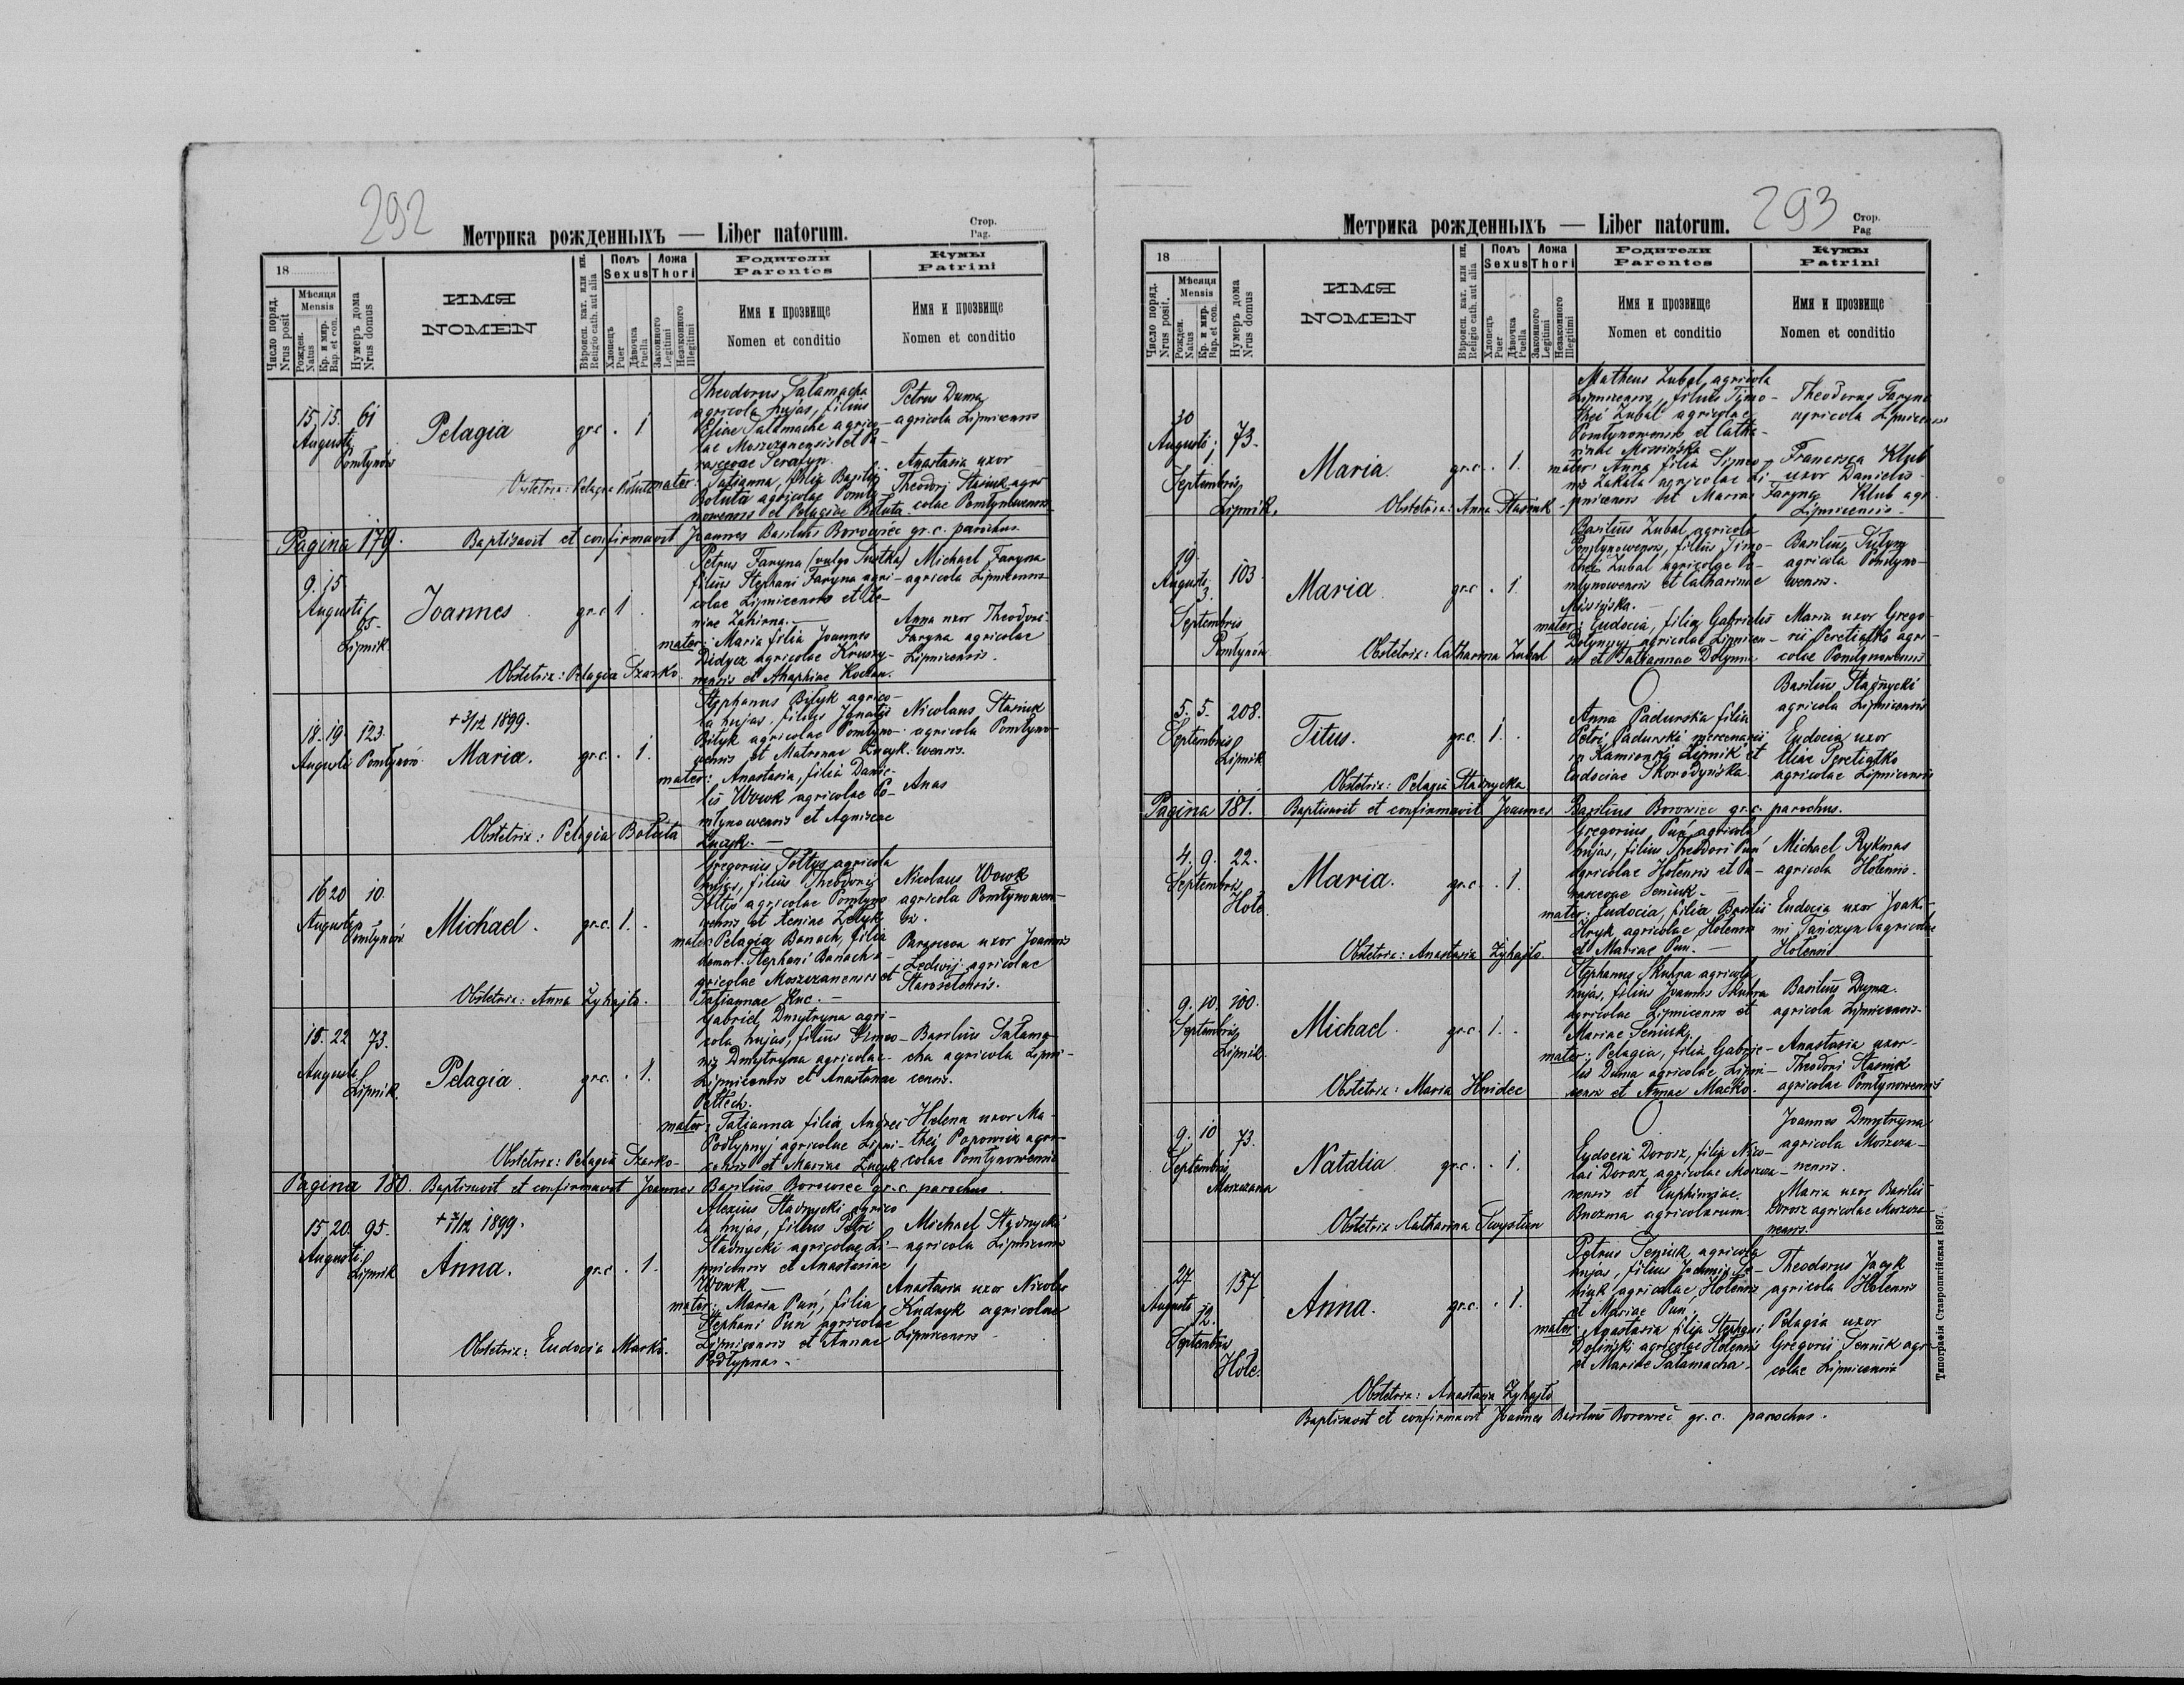 292
Метрика рожденныхъ — Liber natorum.
Стор.
Pag.
18
Число поряд.
Nrus posit
Мѣсяця
Mensis
Рожден.
Natus
Кр. и мир.
Bap. et con.
Нумеръ дома
Nrus domus
ИМЯ
NOMEN
Вѣроисп. кат. или ин.
Religio cath. aut alia
Полъ
Sexus
Хлопець
Puer
Дѣвочка
Puella
Ложа
Thori
Законного
Legitimi
Незаконного
Illegitimi
Родители
Parentes
Имя и прозвище
Nomen et conditio
Кумы
Patrini
Имя и прозвище
Nomen et conditio
15. 15. 61
Augusti
Pomłynów
Pelagia
gr.c . 1
Theodorus Sałamacha
agricola hujas, filius
Eliae Sałamacha agrico-
lae Moszczanensis et Pa-
rascevae Serafyn.
mater: Tatianna, filia Basilii
Botuta agricolae Pomły-
nowensis et Pelagiae Botuta.
Petrus Duma
agricola Lipnicensis
Anastasia uxor
Theodori Stasiuk agri-
colae Pomłynowensis
Obstetrix: Pelagia Botuta
Pagina 179. Baptisavit et confirmavit Joannes Basilius Borowiec gr. c. parochus.
9. 15
Augusti 65.
Lipnik.
Joannes
gr.c 1 .
Petrus Faryna (vulgo Sustka)
filius Stephani Faryna agri-
colae Lipnicensis et Xe-
niae Zahirna. —
mater: Maria filia Joannes
Didycz agricolae Kruszy-
nensis et Anaphiae Kochan.
Michael Faryna
agricola Lipnicensis
Anna uxor Theodori
Faryna agricolae
Lipnicensis.
Obstetrix: Pelagia Szarko
18. 19 123.
Augusti Pomłynów.
+ 3/12 1899.
Maria.
gr.c . 1.
Stephanus Bityk agrico-
la hujas, filius Ignatii
Bityk agricolae Pomłyno-
wensis et Matronae Łucyk.
mater: Anastasia, filia Danie-
lis Wowk agricolae Po-
młynowensis et Agniscae
Łucyk. —
Nicolaus Stasiuk
agricola Pomłyno-
wensis.
Anas
Obstetrix: Pelagia Botuta
16 20 10.
Augusti Pomłynów
Michael.
gr.c. 1. .
Gregorius Sołtys agricola
hujas, filius Theodori
Sołtys agricolae Pomłyno
wensis et Xeniae Zełyk
mater: Pelagia Banach, filia
demort. Stephani Banach a-
gricolae Moszczanensis et
Tatiannae Kuc. —
Nicolaus Wowk
agricola Pomłynowen-
sis.
Parasceva uxor Joannis
Ledwij agricolae
Staroselensis.
Obstetrix: Anna Żyhajło.
18. 22 73.
Augusti
Lipnik.
Pelagia
gr.c. . 1.
Gabriel Dmytryna agri-
cola hujas, filius Simeo-
nis Dmytryna agricolae
Lipnicensis et Anastasiae
Pettech.
mater: Tatianna filia Andrei
Podłypnyj agricolae Lipni-
censis et Mariae Łucyk
Basilius Sałama-
cha agricola Lipni-
censis.
Helena uxor Ma-
thei Popowicz agri-
colae Pomłynowensis
Obstetrix: Pelagia Szarko
Pagina 180. Baptisavit et confirmavit Joannes Basilius Borowiec gr. c. parochus.
15. 20. 95.
Augusti
Lipnik
+ 7/12 1899.
Anna.
gr.c . 1.
Alexius Stadnycki agrico
la hujas, filius Petri
Stadnycki agricolae Li-
pnicensis et Anastasiae
Wowk
mater: Maria Puń, filia
Stephani Puń agricolae
Lipnicensis et Annae
Podłypna. —
Michael Stadnycki
agricola Lipnicensis
Anastasia uxor Nicolai
Kudryk agricolae
Lipnicensis —
Obstetrix: Eudocia Marko.
293
Метрика рожденныхъ — Liber natorum.
Стор.
Pag
18
Число поряд.
Nrus posit.
Мѣсяця
Mensis
Рожден.
Natus
Кр. и мир.
Bap. et con.
Нумеръ дома
Nrus domus
ИМЯ
NOMEN
Вѣроисп. кат. или ин.
Religio cath. aut alia
Полъ
Sexus
Хлопець
Puer
Дѣвочка
Puella
Ложа
Thori
Законного
Legitimi
Незаконного
Illegitimi
Родители
Parentes
Имя и прозвище
Nomen et conditio
Кумы
Patrini
Имя и прозвище
Nomen et conditio
30
Augusti 1 73.
Septembris
Lipnik.
Maria.
gr.c . 1.
Matheus Zubal agricola
Lipnicensis, filius Timo-
thei Zubal agricolae
Pomłynowensis et Catha-
rinae Missińska
mater: Anna filia Simeo-
nis Zakała agricolae Li-
pnicensis et Mariae Faryna
Theodorus Faryna
agricola Lipnicensis
Francisca Klub
uxor Danielis
Klub agr.
Lipnicensis.
Obstetrix: Anna Stasiuk
19
Augusti 3. 103.
Septembris
Pomłynów
Maria
gr.c . 1.
Basilius Zubal agricola
Pomłynowensis, filius Timo-
thei Zubal agricolae Po-
młynowensis et Catharinae
Missińska. —
mater: Eudocia, filia Gabrielis
Dołynnyj agricolae Lipnicen-
sis et Tatiannae Dołynna
Basilius Sułym
agricola Pomłyno-
wensis.
Maria uxor Grego-
rii Peretiatko agri-
colae Pomłynowensis
Obstetrix: Catharina Zubal
5. 5. 208.
Septembris
Lipnik
Titus.
gr.c. 1. .
Anna Padurska filia
Petri Padurski mercenarii
in Kamionka Lipnik et
Eudociae Skorodyńska.
Basilius Stadnycki
agricola Lipnicensis
Eudocia uxor
Eliae Peretiatko
agricolae Lipnicensis
Obstetrix: Pelagia Stadnycka
Pagina 181. Baptisavit et confirmavit Joannes Basilius Borowiec gr. c. parochus.
4. 9. 22.
Septembris
Hołe.
Maria.
gr.c. . 1.
Gregorius Puń agricola
hujas, filius Theodori Puń
agricolae Hołensis et Pa-
rascevae Seniuk. —
mater: Eudocia, filia Basilii
Hryk agricolae Hołensis
et Mariae Puń. —
Michael Rykmas
agricola Hołensis.
Eudocia uxor Joaki-
mi Tańczyn agricolae
Hołensis
Obstetrix: Anastasia Żyhajło.
9. 10. 100.
Septembris
Lipnik.
Michael
gr.c. 1. .
Stephanus Skuhra agricola
hujas, filius Joannis Skuhra
agricolae Lipnicensis et
Mariae Seniuk.
mater: Pelagia, filia Gabrie-
lis Duma agricolae Lipni-
censis et Annae Maćko.
Basilius Duma.
agricola Lipnicensis.
Anastasia uxor
Theodori Stasiuk
agricolae Pomłynowensis
Obstetrix: Maria Hnidec
9. 10 73.
Septembris
Moszczana
Natalia
gr.c. . 1.
Eudocia Dorosz, filia Nico-
lai Dorosz, agricolae Moszcza-
nensis et Euphimiae
Buczma agricolarum
Joannes Dmytryna
agricola Moszcza-
nensis.
Maria uxor Basilii
Dorosz agricolae Moszcza-
nensis.
Obstetrix Catharina Swystun
27
Augusti 12. 157.
Septembris
Hołe.
Anna.
gr.c. . 1.
Petrus Seniuk agricola
hujas, filius Jachmi Se-
niuk agricolae Hołensis
et Mariae Puń.
mater: Anastasia filia Stephani
Doliński agricolae Hołensis
et Mariae Sałamacha.
Theodorus Jacyk
agricola Hołensis
Pelagia uxor
Gregorii Seniuk agri-
colae Lipnicensis
Obstetrix: Anastasia Żyhajło
Baptisavit et confirmavit Joannes Basilius Borowiec gr. c. parochus.
Типографія Ставропигійская 1897.